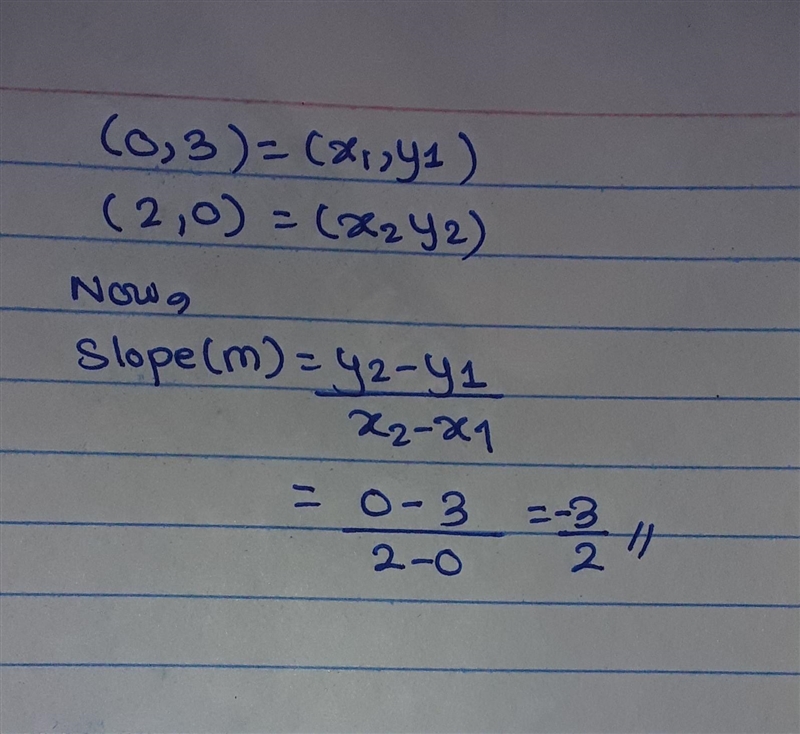 (0,3)=(x₁,y1)
(2,0) = (x₂y₂)
Now,
Slope(m) = y₂-y₁
x₂-x₁
= 0-3 = -3
2-0 2 //